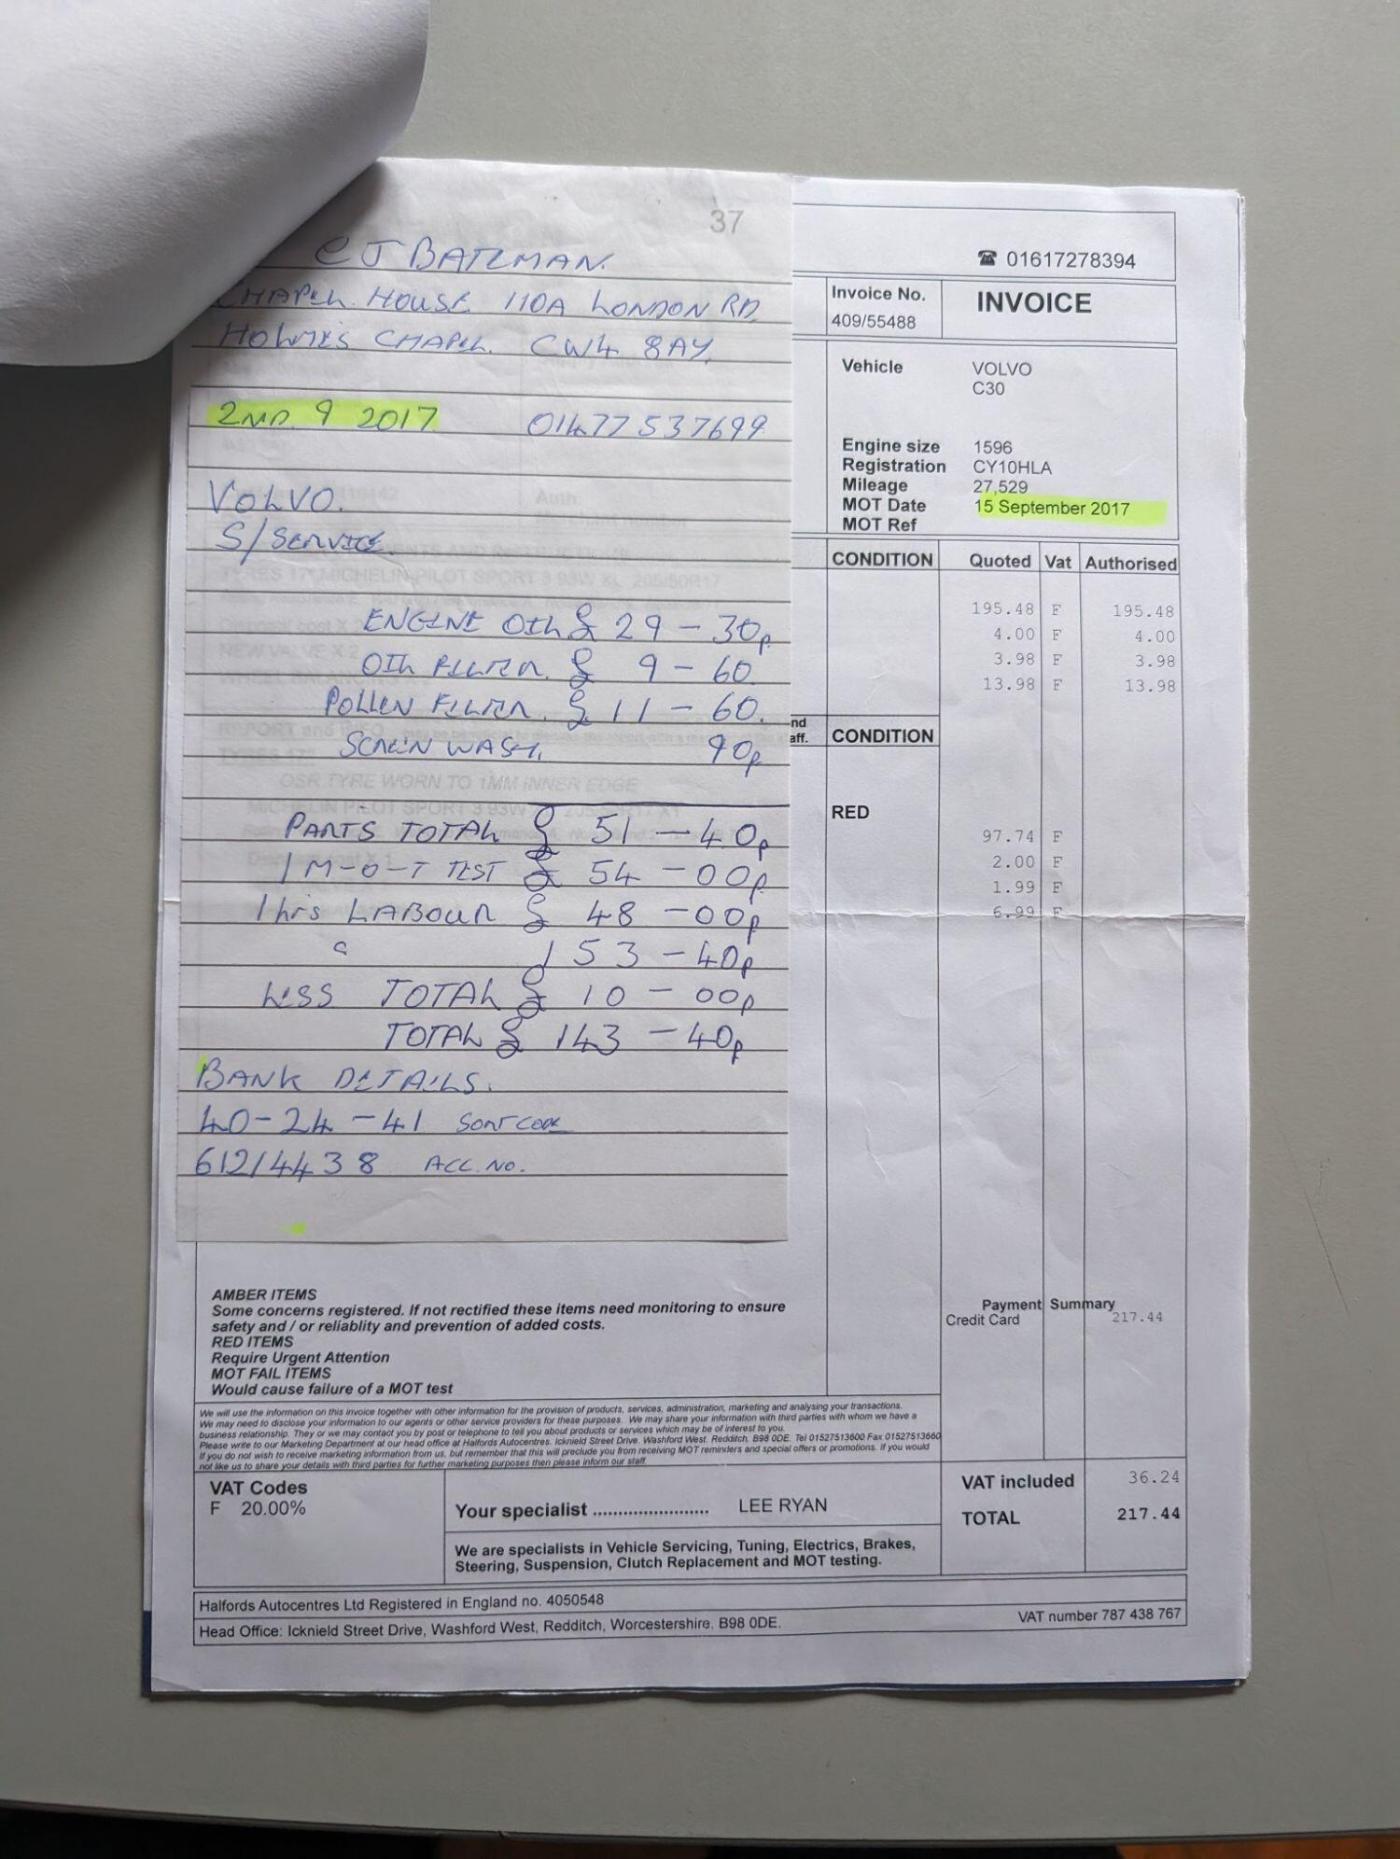 37
CJ BATEMAN.
CHAPEL HOUSE 110A LONDON RD,
HOLMES CHAPEL. CW4 8AY,
2ND. 9 2017 01477537699
VOLVO.
S/SERVICE.
ENGINE OIL £ 29-30p
OIL FILTER. £ 9-60
POLLEN FILTER. £ 11-60.
SCREEN WASH. 90p
PARTS TOTAL £ 51-40p
1 M-O-T TEST £ 54-00p
1hrs LABOUR £ 48-00p
153-40p
LESS TOTAL £ 10-00p
TOTAL £ 143-40p
BANK DETAILS.
40-24-41 SORT CODE
61214438 ACC. NO.
☎ 01617278394
Invoice No. INVOICE
409/55488
Vehicle VOLVO
C30
Engine size 1596
Registration CY10HLA
Mileage 27,529
MOT Date 15 September 2017
MOT Ref
CONDITION Quoted Vat Authorised
195.48 F 195.48
4.00 F 4.00
3.98 F 3.98
13.98 F 13.98
nd
aff. CONDITION
OSR TYRE WORN TO 1MM INNER EDGE
RED
97.74 F
2.00 F
1.99 F
6.99 F
AMBER ITEMS
Some concerns registered. If not rectified these items need monitoring to ensure
safety and / or reliablity and prevention of added costs.
RED ITEMS
Require Urgent Attention
MOT FAIL ITEMS
Would cause failure of a MOT test
Payment Summary
Credit Card 217.44
We will use the information on this invoice together with other information for the provision of products, services, administration, marketing and analysing your transactions.
We may need to disclose your information to our agents or other service providers for these purposes. We may share your information with third parties with whom we have a
business relationship. They or we may contact you by post or telephone to tell you about products or services which may be of interest to you.
Please write to our Marketing Department at our head office at Halfords Autocentres. Icknield Street Drive. Washford West. Redditch. B98 0DE. Tel 01527513600 Fax 01527513660
if you do not wish to receive marketing information from us, but remember that this will preclude you from receiving MOT reminders and special offers or promotions. If you would
not like us to share your details with third parties for further marketing purposes then please inform our staff.
VAT Codes
F 20.00%
Your specialist ........................ LEE RYAN
We are specialists in Vehicle Servicing, Tuning, Electrics, Brakes,
Steering, Suspension, Clutch Replacement and MOT testing.
VAT included 36.24
TOTAL 217.44
Halfords Autocentres Ltd Registered in England no. 4050548
Head Office: Icknield Street Drive, Washford West, Redditch, Worcestershire. B98 0DE.
VAT number 787 438 767